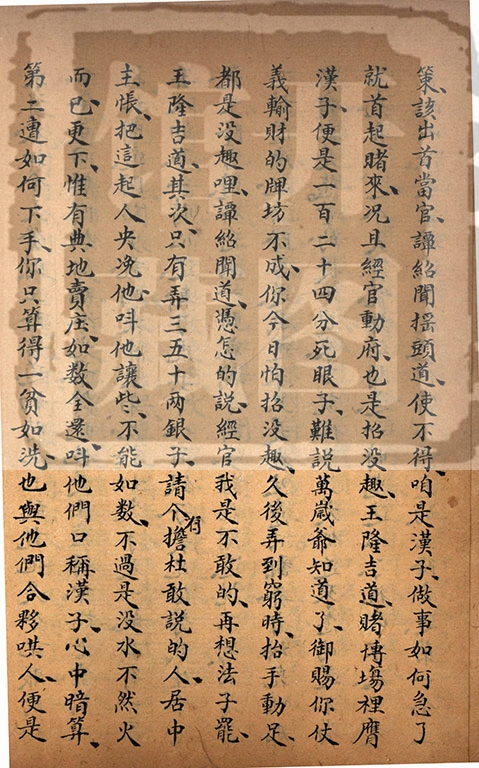 策、該出首當官、譚紹聞揺頭道、使不得、咱是漢子、做事如何急了
就首起賭來、况且經官動府、也是招没趣、王隆吉道、賭博塲裡膺
漢子、便是一百二十四分死眼子、難說萬歲爺知道了、御賜你仗
義輸財的牌坊不成、你今日怕招没趣、久後弄到窮時、抬手動足、
都是没趣哩、譚紹聞道、憑怎的說、經官我是不敢的、再想法子罷、
王隆吉道、其次、只有弄三五十两銀子、請个有擔杜敢說的人、居中
主悵、把這起人央浼他、呌他讓些、不能如数、不過是没水不然火
而已、更下、惟有典地賣庄、如数全還、呌他們口稱漢子、心中暗算、
第二遭如何下手、你只算得一貧如洗、也與他們合夥哄人、便是